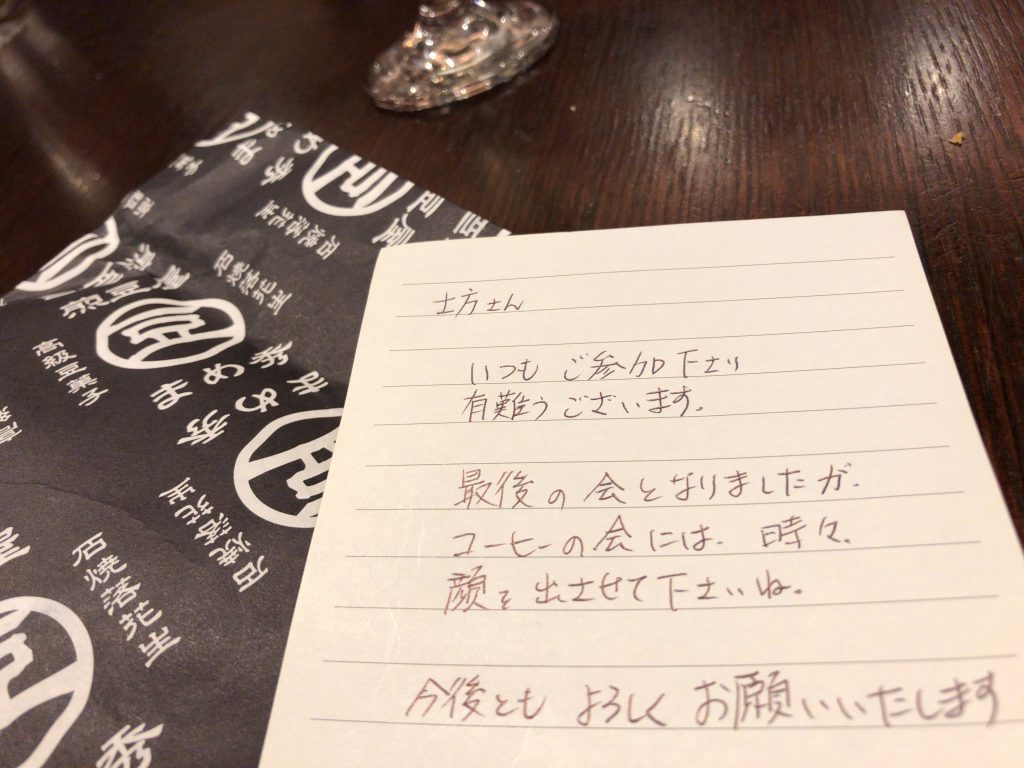 土方さん
いつもご参加下さり
有難うございます。
最後の会となりましたが、
コーヒーの会には、時々、
顔を出させて下さいね。
今後とも よろしくお願いいたします
まめ秀
高級豆菓子
石焼落花生
石焼落花生
石焼落花生
石焼落花生
秀